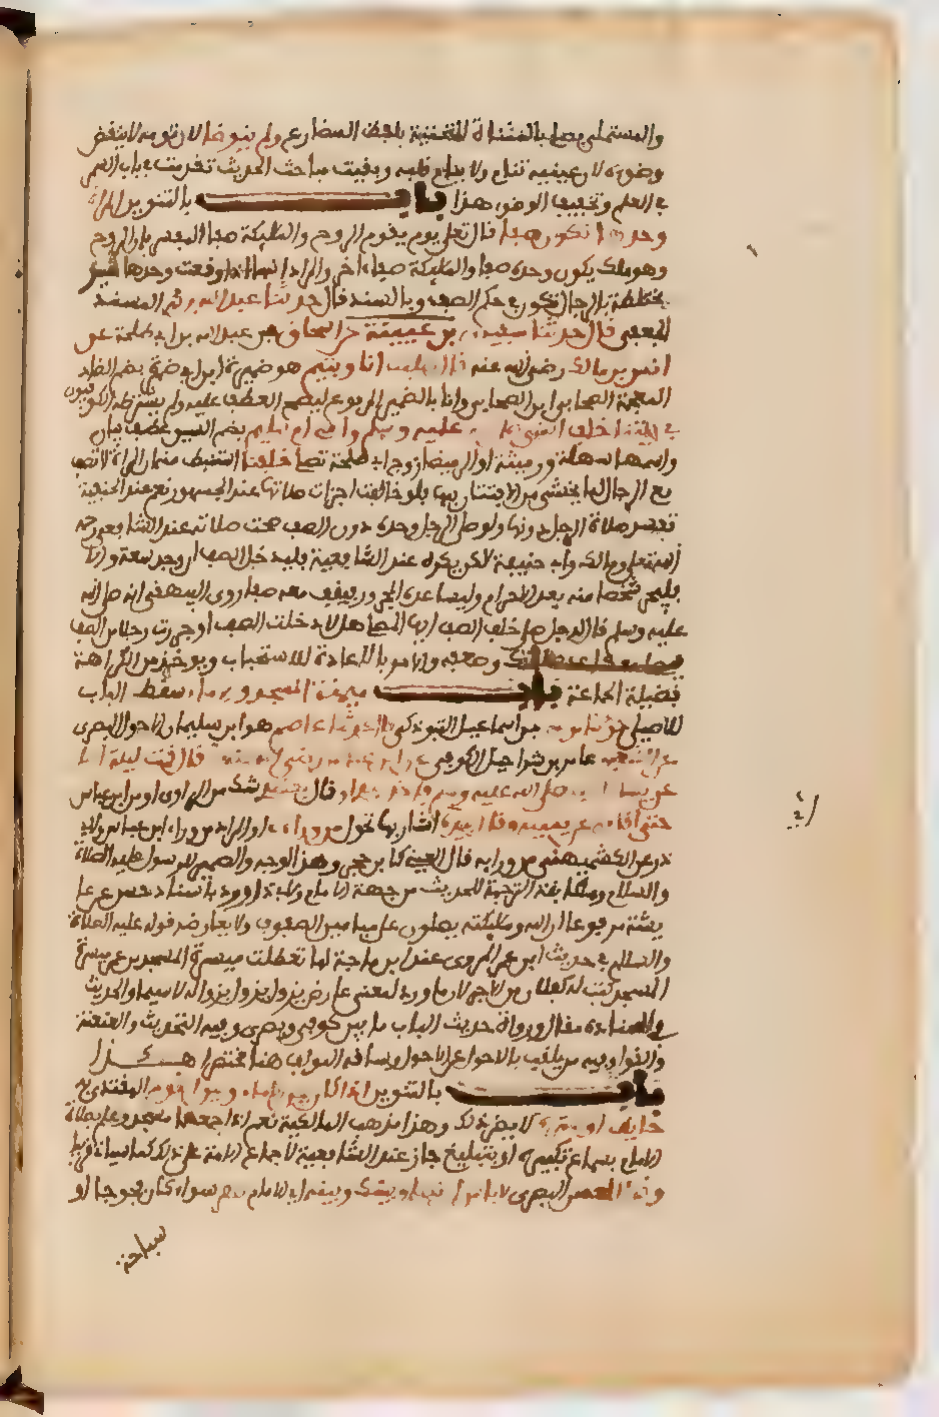 والمستملي يصلي بالمثناة التحتية بلفظ المضارع ولم يتوضا لان نومه لا ينقض
وضوءه لان عينيه تنام ولا ينام قلبه وبقيت مباحث الحديث تقدمت في باب السمر
في العلم وتخفيف الوضوء هذا باب بالتنوين المراة
وحدها تكون صفا قال تعلى يوم يقوم الروح والمليكة صفا
وهو ملك يكون وحده صفا والمليكة صفا ءاخر والمراد انها اذا وقفت وحدها غير
مختلطة بالرجال تكون في حكم الصف وبالسند قال حدثنا عبد الله بن محمد المسندي
الجعفي قال حدثنا سفين بن عيينة عن اسحاق بن عبد الله بن ابي طلحة عن
انس بن مالك رضي الله عنه قال صليت انا ويتيم هو ضميرة ابن ابي ضميرة بضم الضاد
المعجمة الصحابي ابن الصحابي وانا بالضمير المرفوع ليصح العطف عليه ولم يشترطه الكوفيون
في بيتنا خلف النبي صلى الله عليه وسلم وامي ام سليم بضم السين عطف بيان
واسمها سهلة او رميثة او الرميصا زوج ابي طلحة تصلي خلفنا استنبط منه ان المراة لا تصف
مع الرجال لما يخشى من الافتتان بها فلو خالفت اجزات صلاتها عند الجمهور نعم عند الحنفية
تفسد صلاة الرجل دونها ولو صلى الرجل وحده دون الصف صحت صلاته عند الشافعي رحمه
الله تعلى ومالك وابي حنيفة لكن يكره عند الشافعية فليدخل الصف ان وجد سعة والا
فليجر شخصا منه بعد الاحرام وليساعده المجرور فيقف معه صفا روى البيهقي انه صلى الله
عليه وسلم قال لرجل صلى خلف الصف ايها المصلي هلا دخلت الصف او جررت رجلا من الصف
وضعفه والامر بالاعادة للاستحباب ويوخذ من الكراهة
فضيلة الجماعة باب ميمنة المسجد والامام سقط الباب
للاصيلي حدثنا موسى بن اسماعيل التبوذكي قال حدثنا عاصم هو ابن سليمان الاحول البصري
عن الشعبي عامر بن شراحيل الكوفي عن ابن عباس رضي الله عنه قال قمت ليلة اصلي
عن يسار النبي صلى الله عليه وسلم فاخذ بيدي او قال بعضدي شك من الراوي او من ابن عباس
حتى اقامني عن يمينه وقال بيده اي اشار بها تحول من وراءي او المراد من وراء ابن عباس ولابي
ذر عن الكشميهني من ورايه قال العيني كابن حجر وهذا اوجه والضمير للرسول عليه الصلاة
والسلام ومطابقة الترجمة للحديث من جهة الامام ولابي داوود باسناد حسن عن عا
يشة مرفوعا ان الله ومليكته يصلون على ميامين الصفوف ولا يعارضه قوله عليه الصلاة
والسلام في حديث ابن عمر المروي عند ابن ماجة لما تعطلت ميسرة المسجد من عمر ميسرة
المسجد كتب له كفلان من الاجر لان ما ورد لمعنى عارض يزول بزواله لا سيما والحديث
في اسناده مقال ورواة حديث الباب ما بين كوفي وبصري وفيه التحديث والعنعنة
والقول وفيه من يلقب بالاحول عن الاحول وساقه المولف هنا مختصرا هـــذا
باب بالتنوين اذا كان بين الامام وبين القوم المقتدين به
حايط او سترة لا يضر ذلك وهذا مذهب المالكية نعم اذا جمعهما مسجد وعلم صلاة
الامام بسماع تكبيره او بتبليغ جاز عند الشافعية لاجماع الامة على ذلك كما سياتي
وقال الحسن البصري لا باس ان تصلي وبينك وبينه اي الامام نهر سواء كان محوجا الى
سباحة